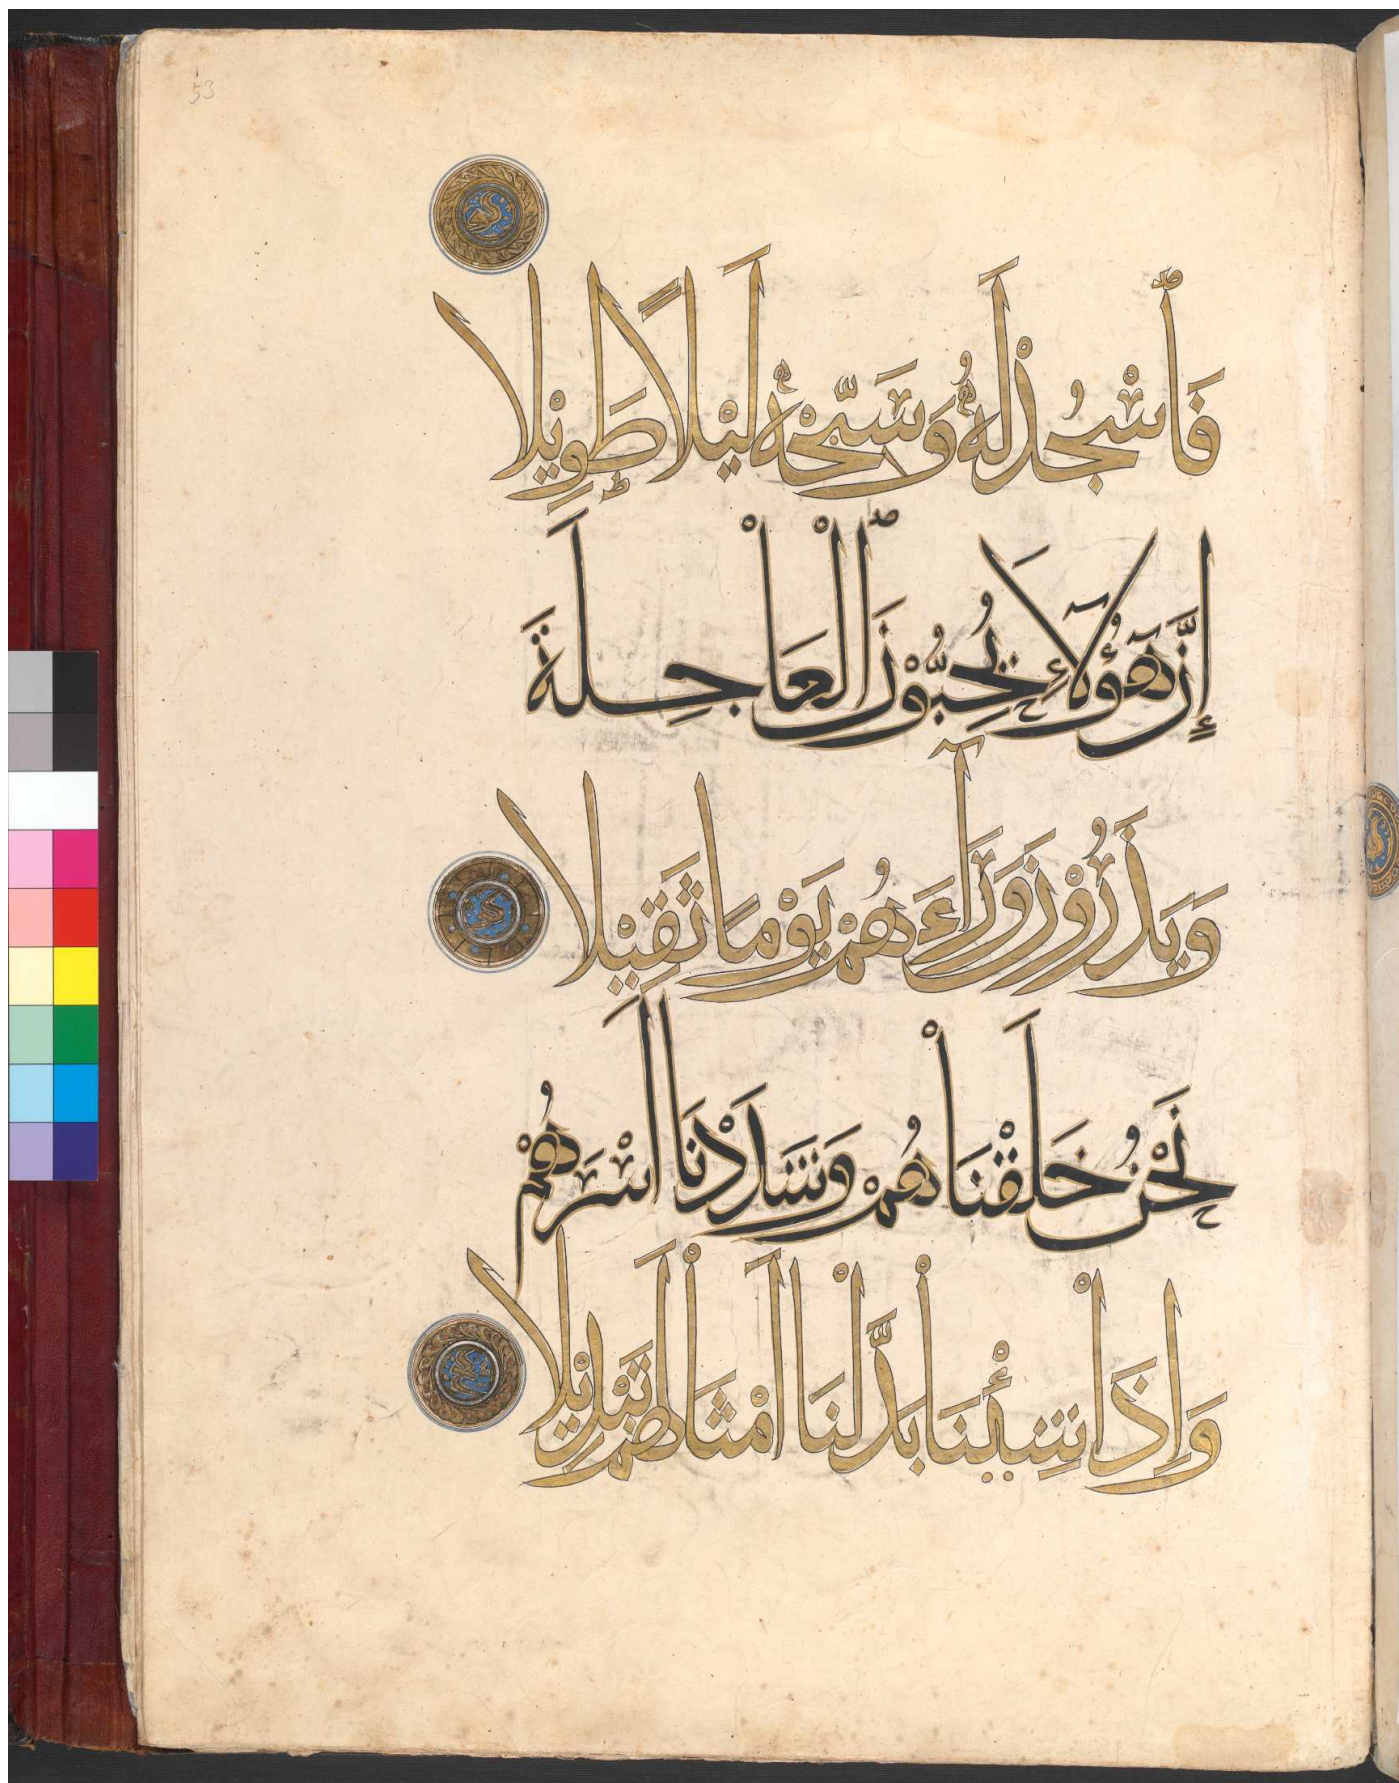 53
فَاسْجُدْ لَهُ وَسَبِّحْهُ لَيْلًا طَوِيْلا
إِنَّ هٰٓؤُلَآءِ يُحِبُّوْنَ الْعَاْجِلَةَ
وَيَذَرُوْنَ وَرَآءَهُمْ يَوْمًا ثَقِيْلا
نَحْنُ خَلَقْنَاْهُمْ وَشَدَدْنَا اَسْرَهُمْ
وَاِذَاْ شِئْنَاْ بَدَّلْنَا اَمْثَاْلَهُمْ تَبْدِيْلا